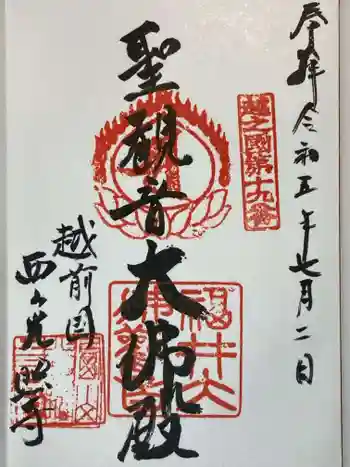 奉拝 令和五年七月二日
越之國第十九番
聖観音大佛殿
福井大佛観音
越前国
西光寺